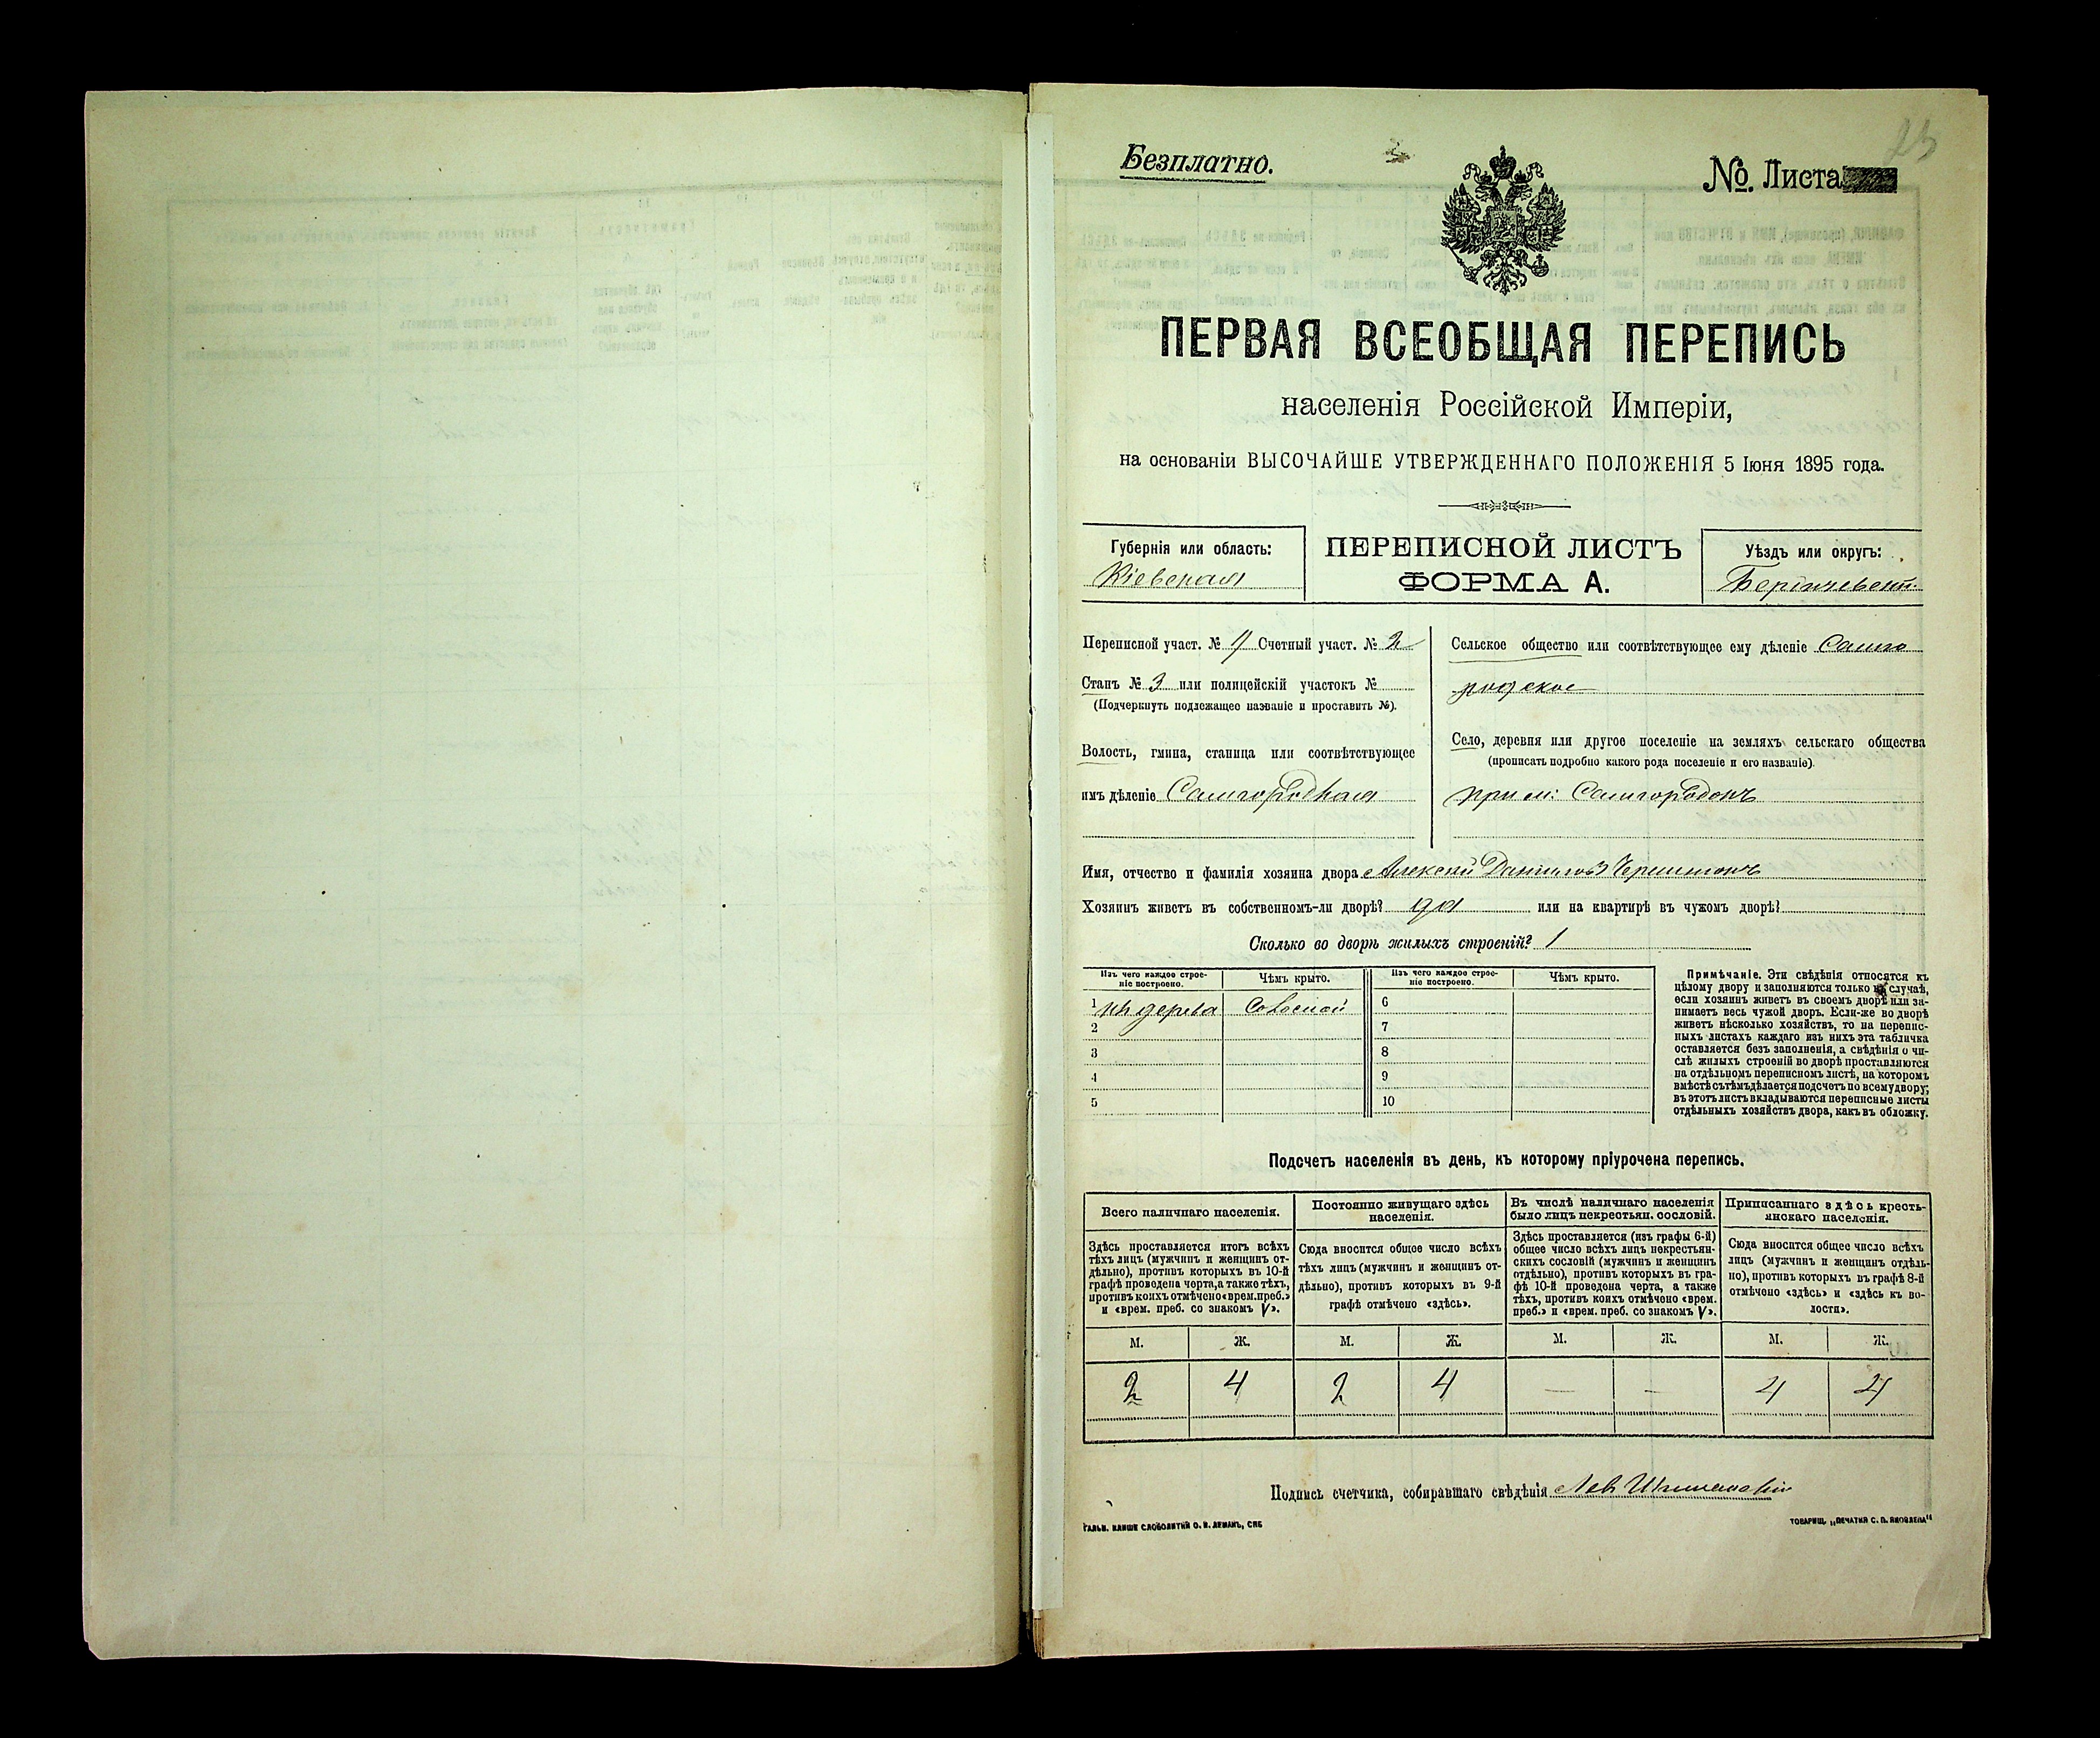 23
Безплатно.
№. Листа
ПЕРВАЯ ВСЕОБЩАЯ ПЕРЕПИСЬ
населенія Россійской Имперіи,
на основаніи ВЫСОЧАЙШЕ УТВЕРЖДЕННАГО ПОЛОЖЕНІЯ 5 Іюня 1895 года.
Губернія или область:
Кіевская
ПЕРЕПИСНОЙ ЛИСТЪ
ФОРМА А.
Уѣздъ или округъ:
Бердичевскій
Переписной участ. № 4 Счетный участ. № 2
Станъ № 3 или полицейскій участокъ №
(Подчеркнуть подлежащее названіе и проставить №).
Волость, гмина, станица или соотвѣтствующее
имъ дѣленіе Самгородская
Сельское общество или соотвѣтствующее ему дѣленіе Самго
родское
Село, деревня или другое поселеніе на земляхъ сельскаго общества
(прописать подробно какого рода поселеніе и его названіе).
при м: Самгородокъ
Имя, отчество и фамилія хозяина двора Алексѣй Даниловъ
Хозяинъ живетъ въ собственномъ-ли дворѣ? да или на квартирѣ въ чужомъ дворѣ?
Сколько во дворѣ жилыхъ строеній? 1
Изъ чего каждое строе-
ніе построено.
Чѣмъ крыто.
Изъ чего каждое строе-
ніе построено.
Чѣмъ крыто.
1 изъ дерева соломой
2
3
4
5
6
7
8
9
10
Примѣчаніе. Эти свѣдѣнія относятся къ
цѣлому двору и заполняются только въ случаѣ,
если хозяинъ живетъ въ своемъ дворѣ или за-
нимаетъ весь чужой дворъ. Если-же во дворѣ
живетъ нѣсколько хозяйствъ, то на перепис-
ныхъ листахъ каждаго изъ нихъ эта табличка
оставляется безъ заполненія, а свѣдѣнія о чи-
слѣ жилыхъ строеній во дворѣ проставляются
на отдѣльномъ переписномъ листѣ, на которомъ
вмѣстѣ съ тѣмъ дѣлается подсчетъ по всему двору;
въ этотъ листъ вкладываются переписные листы
отдѣльныхъ хозяйствъ двора, какъ въ обложку.
Подсчетъ населенія въ день, къ которому пріурочена перепись.
Всего наличнаго населенія.
Здѣсь проставляется итогъ всѣхъ
тѣхъ лицъ (мужчинъ и женщинъ от-
дѣльно), противъ которыхъ въ 10-й
графѣ проведена черта, а также тѣхъ,
противъ коихъ отмѣчено «врем. преб.»
и «врем. преб. со знакомъ V».
Постоянно живущаго здѣсь
населенія.
Сюда вносится общее число всѣхъ
тѣхъ лицъ (мужчинъ и женщинъ от-
дѣльно), противъ которыхъ въ 9-й
графѣ отмѣчено «здѣсь».
Въ числѣ наличнаго населенія
было лицъ некрестьян. сословій.
Здѣсь проставляется (изъ графы 6-й)
общее число всѣхъ лицъ некрестьян-
скихъ сословій (мужчинъ и женщинъ
отдѣльно), противъ которыхъ въ гра-
фѣ 10-й проведена черта, а также
тѣхъ, противъ коихъ отмѣчено «врем.
преб.» и «врем. преб. со знакомъ V».
Приписаннаго здѣсь кресть-
янскаго населенія.
Сюда вносится общее число всѣхъ
лицъ (мужчинъ и женщинъ отдѣль-
но), противъ которыхъ въ графѣ 8-й
отмѣчено «здѣсь» и «здѣсь къ во-
лости».
М. Ж. М. Ж. М. Ж. М. Ж.
2 4 2 4 — — 4 4
Подпись счетчика, собиравшаго свѣдѣнія
ГАЛЬВ. КЛИШЕ СЛОВОЛИТНИ О. И. ЛЕМАНЪ, СПБ
ТОВАРИЩ. „ПЕЧАТНЯ С. П. ЯКОВЛЕВА“